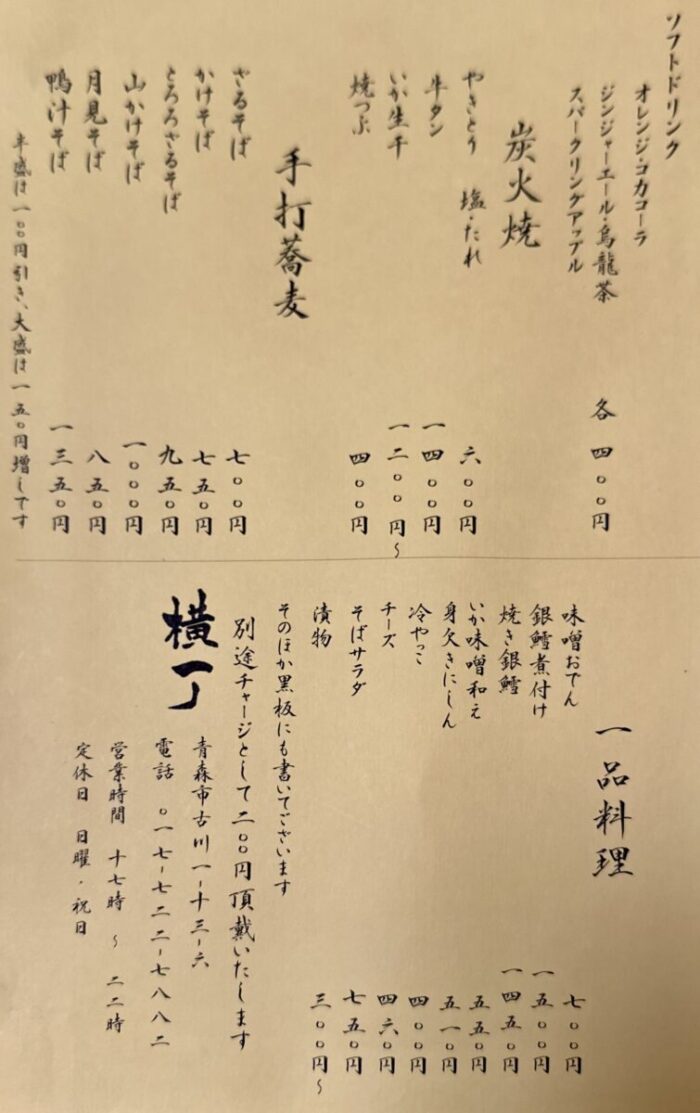 ソフトドリンク
オレンジ・コカコーラ
ジンジャーエール・烏龍茶　各 四〇〇円
スパークリングアップル
炭火焼
やきとり　塩・たれ　六〇〇円
牛タン　一四〇〇円
いか生干　一二〇〇円～
焼つぶ　四〇〇円
手打蕎麦
ざるそば　七〇〇円
かけそば　七五〇円
とろろざるそば　九五〇円
山かけそば　一〇〇〇円
月見そば　八五〇円
鴨汁そば　一三五〇円
半盛は一〇〇円引き、大盛は一五〇円増しです
一品料理
味噌おでん　七〇〇円
銀鱈煮付け　一五〇〇円
焼き銀鱈　一四五〇円
いか味噌和え　五五〇円
身欠きにしん　五一〇円
冷やっこ　四〇〇円
チーズ　四六〇円
そばサラダ　七五〇円
漬物　三〇〇円～
そのほか黒板にも書いてございます
別途チャージとして二〇〇円頂戴いたします
横丁
青森市古川一ー十三ー六
電話　〇一七ー七二二ー七八八二
営業時間　十七時　～　二二時
定休日　日曜・祝日